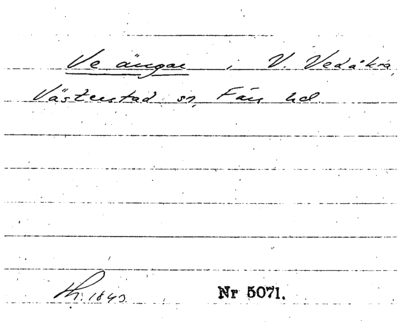 Ve ängar, V. Vedåkra,
Västerstad sn, Färs hd
Nr 5071.